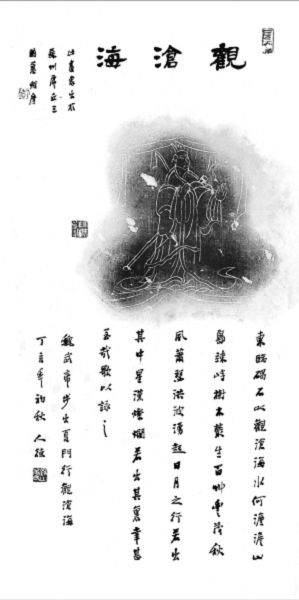 觀滄海
東臨碣石以觀滄海水何澹澹山
島竦峙樹木叢生百艸豐茂秋
風蕭瑟洪波湧起日月之行若出
其中星漢燦爛若出其裏幸甚
至哉歌以詠之
魏武帝步出夏門行觀滄海
丁亥年初秋